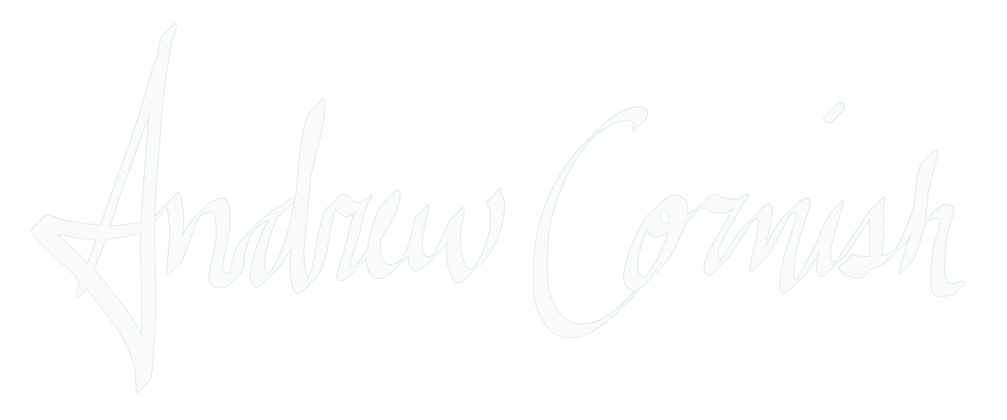 Andrew Cornish